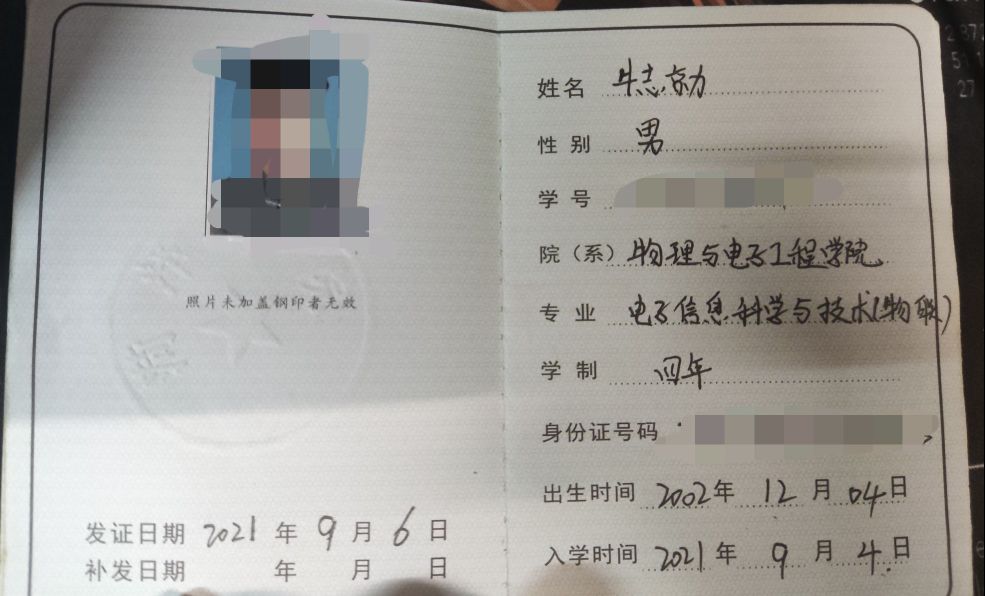 照片未加盖钢印者无效
发证日期 2021 年 9 月 6 日
补发日期 年 月 日
姓名 牛志勍
性别 男
学号
院（系）物理与电子工程学院
专业 电子信息科学与技术(物联)
学制 四年
身份证号码
出生时间 2002 年 12 月 04 日
入学时间 2021 年 9 月 4 日